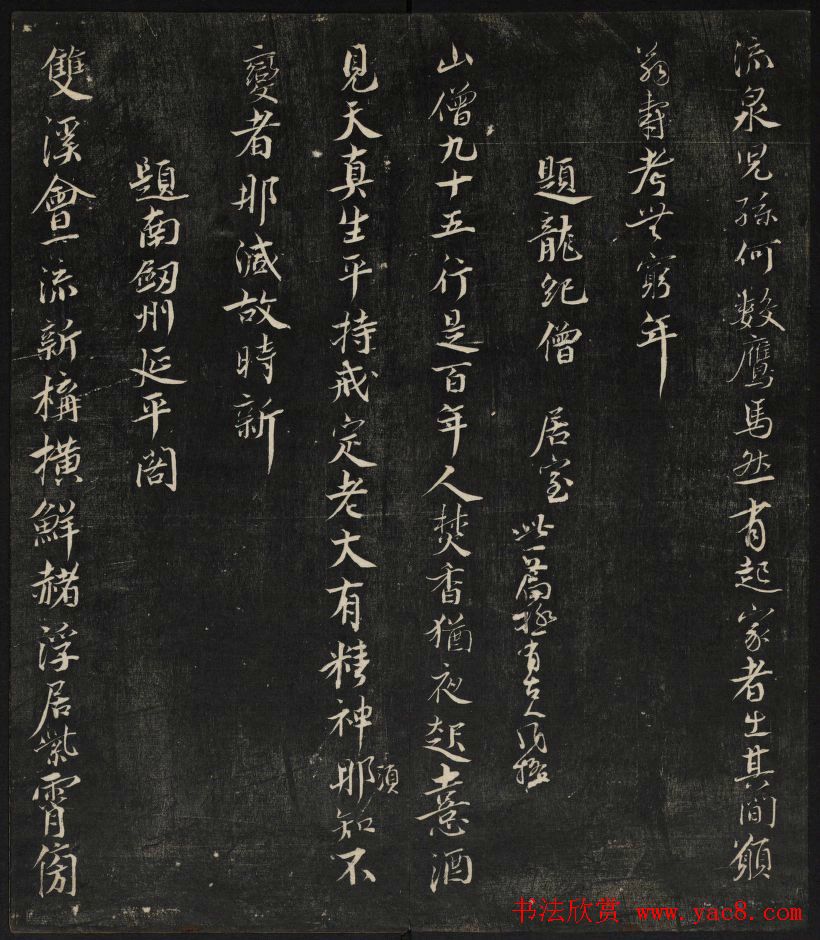 流泉兒孫何數鷹馬然肯起家者生其間願
翁壽考無窮年
題龍紀僧 居室 此一篇極有古人風格
山僧九十五行是百年人焚香猶夜起憙酒
見天真生平持戒定老大有精神那須知不
變者那減故時新
題南劔州延平閣
雙溪會一流新構橫鮮赭浮居紫霄傍
书法欣赏 www.yac8.com